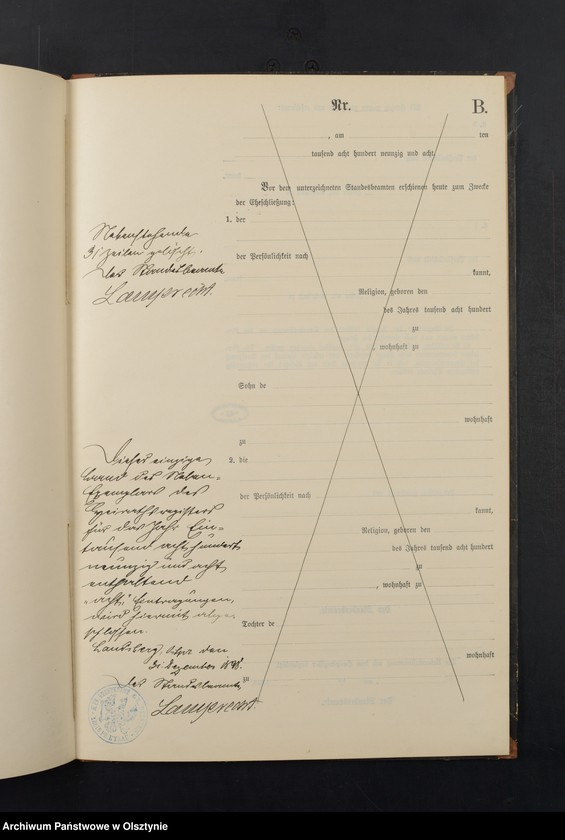 Nr.
B.
, am
ten
tausend acht hundert neunzig und acht
Vor dem unterzeichneten Standesbeamten erschienen heute zum Zwecke
der Eheschließung:
1. der
Nebenstehende
31 Zeilen gelöscht.
Der Standesbeamte
Lamprecht.
der Persönlichkeit nach
kannt,
Religion, geboren den
des Jahres tausend acht hundert
zu
, wohnhaft zu
Sohn de
wohnhaft
zu
2. die
Dieses einzige
Band des Neben-
Exemplars des
Heirathsregisters
für das Jahr Ein-
tausend acht hundert
neunzig und acht
enthaltend
"acht" Eintragungen,
wird hiermit abge-
schlossen.
Landsberg, Ostpr. den
31. Dezember 1898.
Der Standesbeamte
Lamprecht.
der Persönlichkeit nach
kannt,
Religion, geboren den
des Jahres tausend acht hundert
zu
, wohnhaft zu
Tochter de
wohnhaft
zu
Archiwum Państwowe w Olsztynie